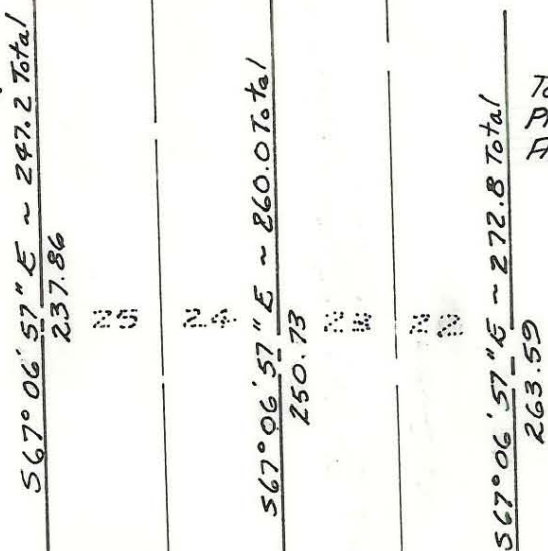 S67°06'57"E ~ 247.2 Total
237.86
25
24
S67°06'57"E ~ 260.0 Total
250.73
23
22
S67°06'57"E ~ 272.8 Total
263.59